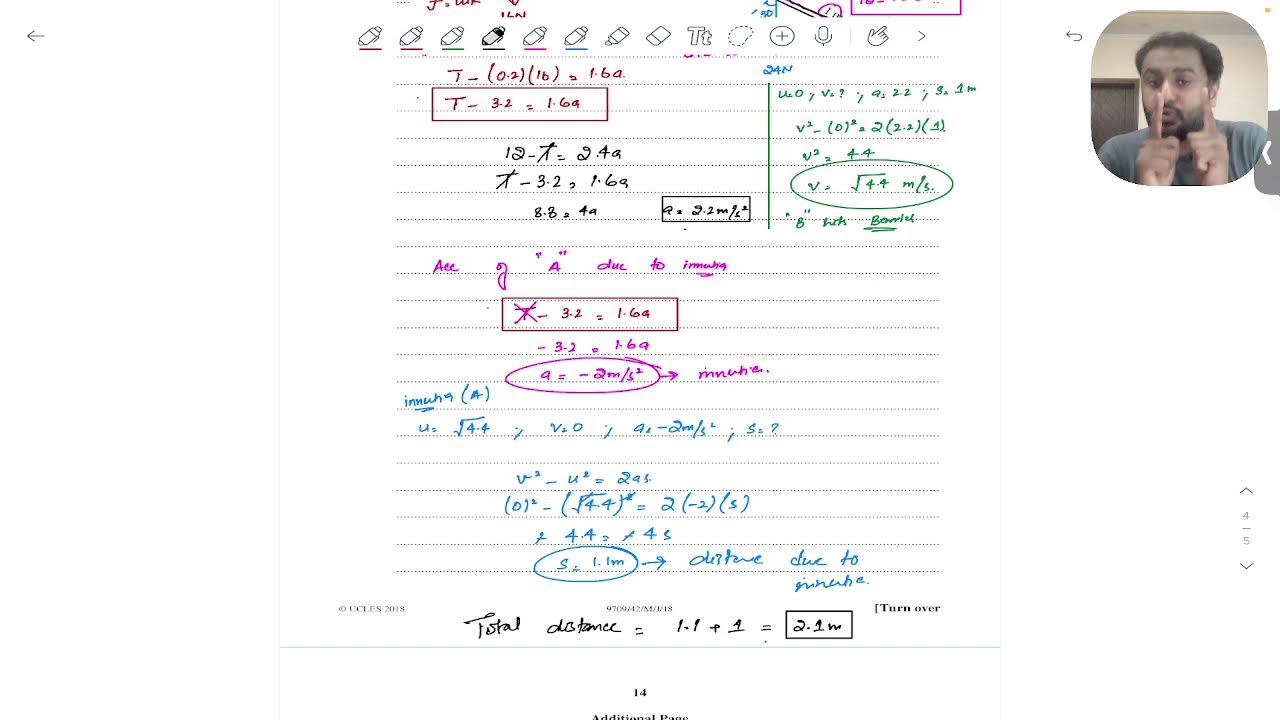 Tt
T - (0.2)(16) = 1.6a
T - 3.2 = 1.6a
12 - T = 2.4a
T - 3.2 = 1.6a
8.8 = 4a
a = 2.2 m/s²
24N
u=0 ; v=? ; a=2.2 ; s=1m
v² - (0)² = 2(2.2)(1)
v² = 4.4
v = √4.4 m/s.
"B" hits Barrier
Acc of "A" due to
T - 3.2 = 1.6a
- 3.2 = 1.6a
a = -2 m/s² →
(A)
u= √4.4 ; v=0 ; a=-2m/s² ; s=?
v² - u² = 2as
(0)² - (√4.4)² = 2(-2)(s)
- 4.4 = - 4s
s= 1.1m → distance due to
© UCLES 2018
9709/42/M/J/18
[Turn over
Total distance = 1.1 + 1 = 2.1m
4
5
14
Additional Page